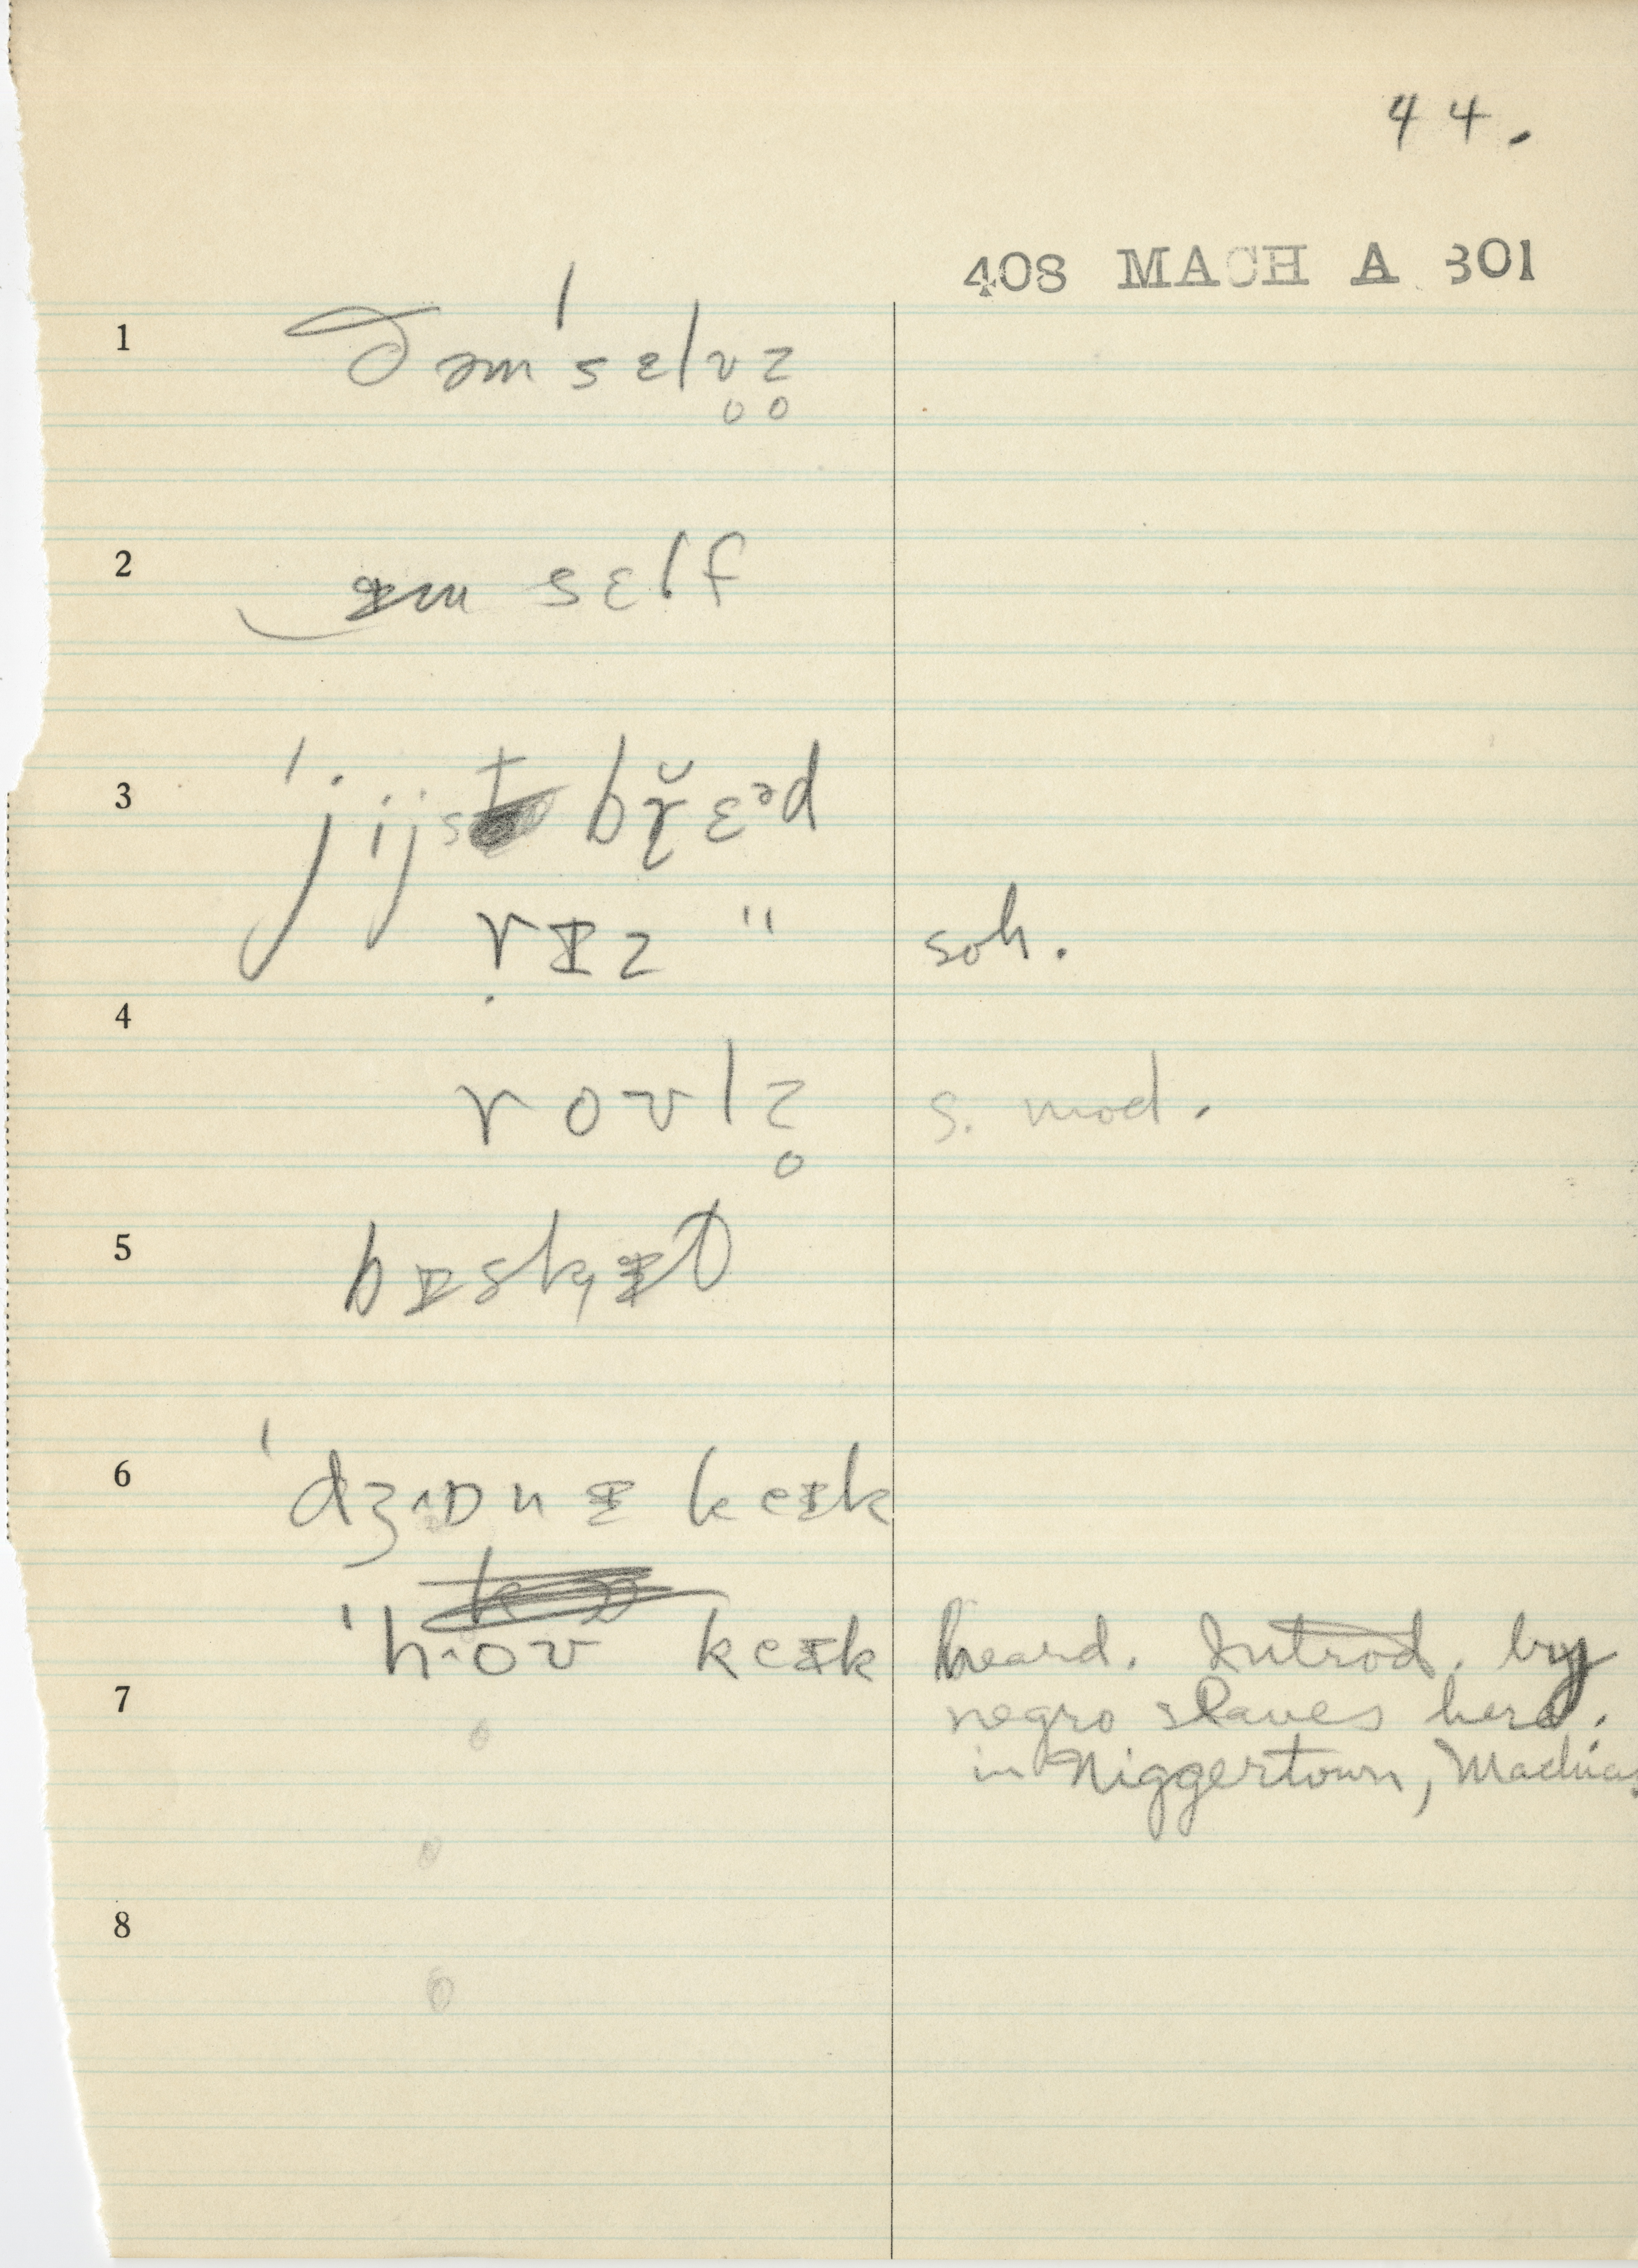 44.
408 MACH A 301
1 ðəm'sɛlv̥z̥
2 ɪm sɛlf
3 'jijst br̯̆ɛᵊd
rɪz " soh.
4
roʊlz̥ s. mod.
5 bɪskɪt
6 'dʒɒnɪ keɪk
'hoʊ keɪk heard. Introd. by
7 negro slaves here.
in Niggertown, Machias
8